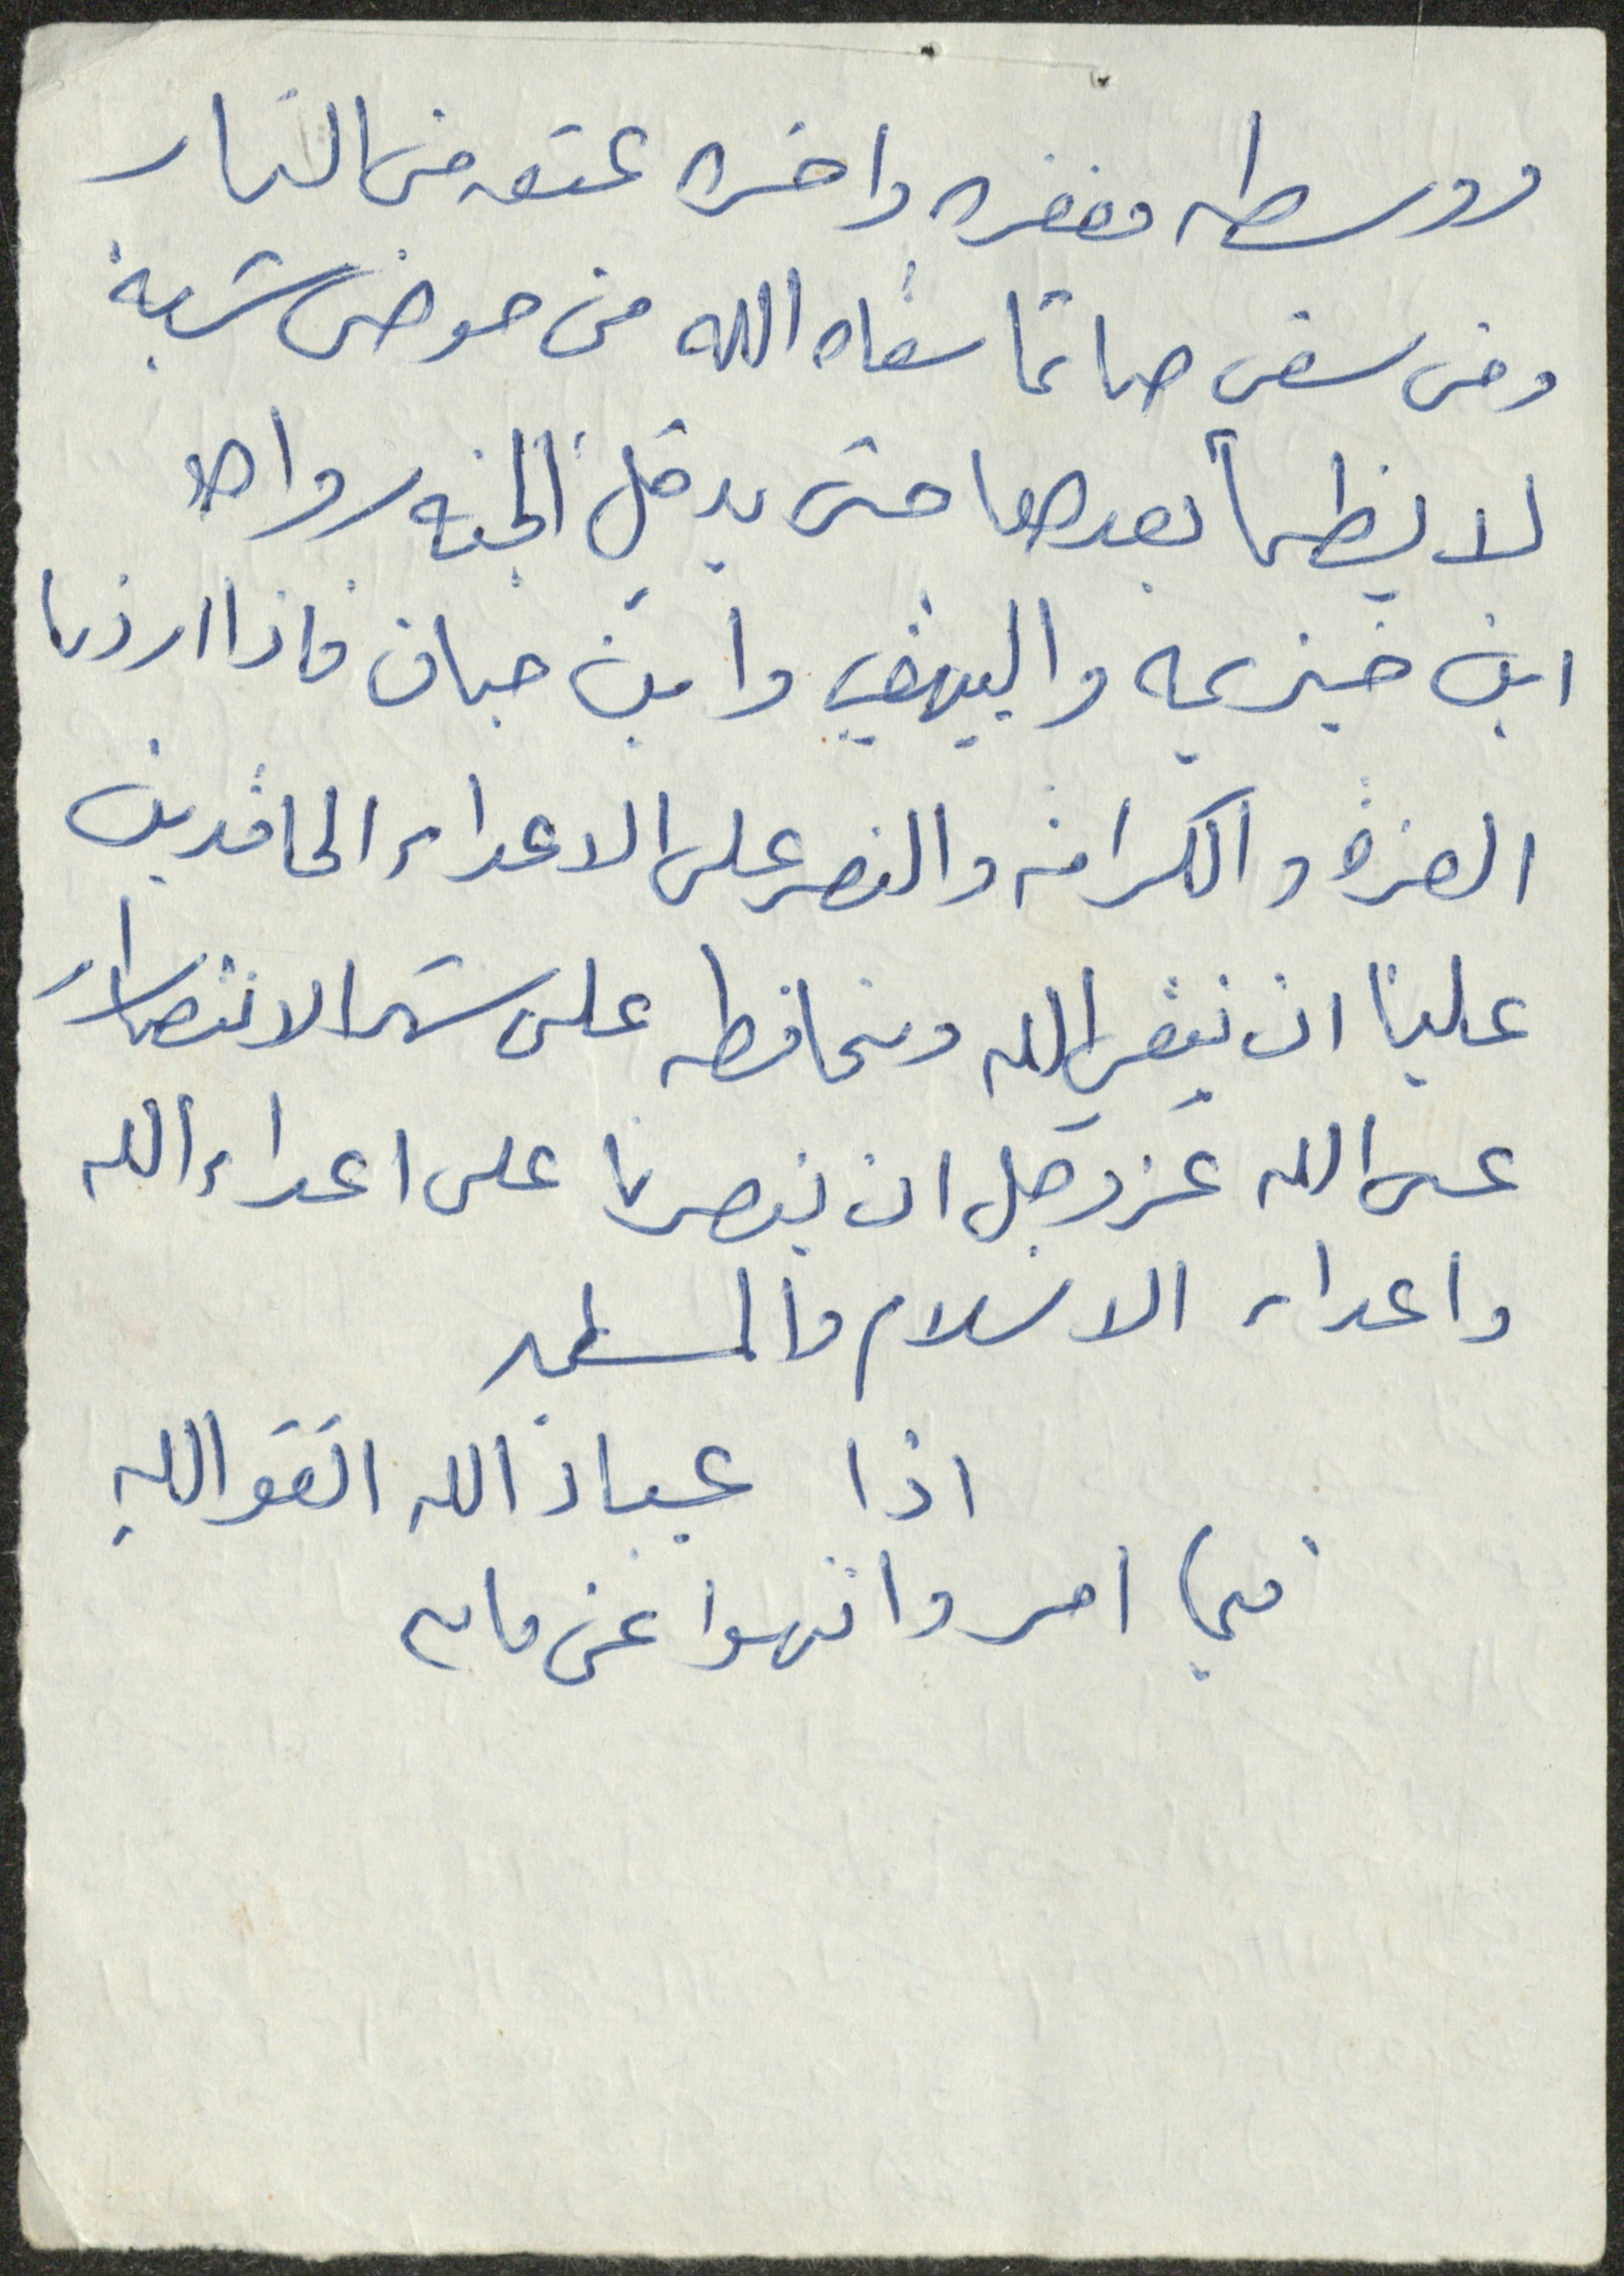 ووسطه مغفره واخره عتقه من النار
ومن سقى صائما سقاه الله من حوضى شربة
لا يظمأ بعدها حتى يدخل الجنه رواه
ابن خزيمه والبيهقي وابن حبان فاذا اردنا
العزة والكرامه والنصر على الاعداء الحاقدين
علينا ان نتقي الله ونحافظ على شهر الانتصارات
عسى الله عز وجل ان ينصرنا على اعداء الله
واعداء الاسلام والمسلمين
اذا عباد الله اتقو الله
فيما امر وانتهوا عن ما